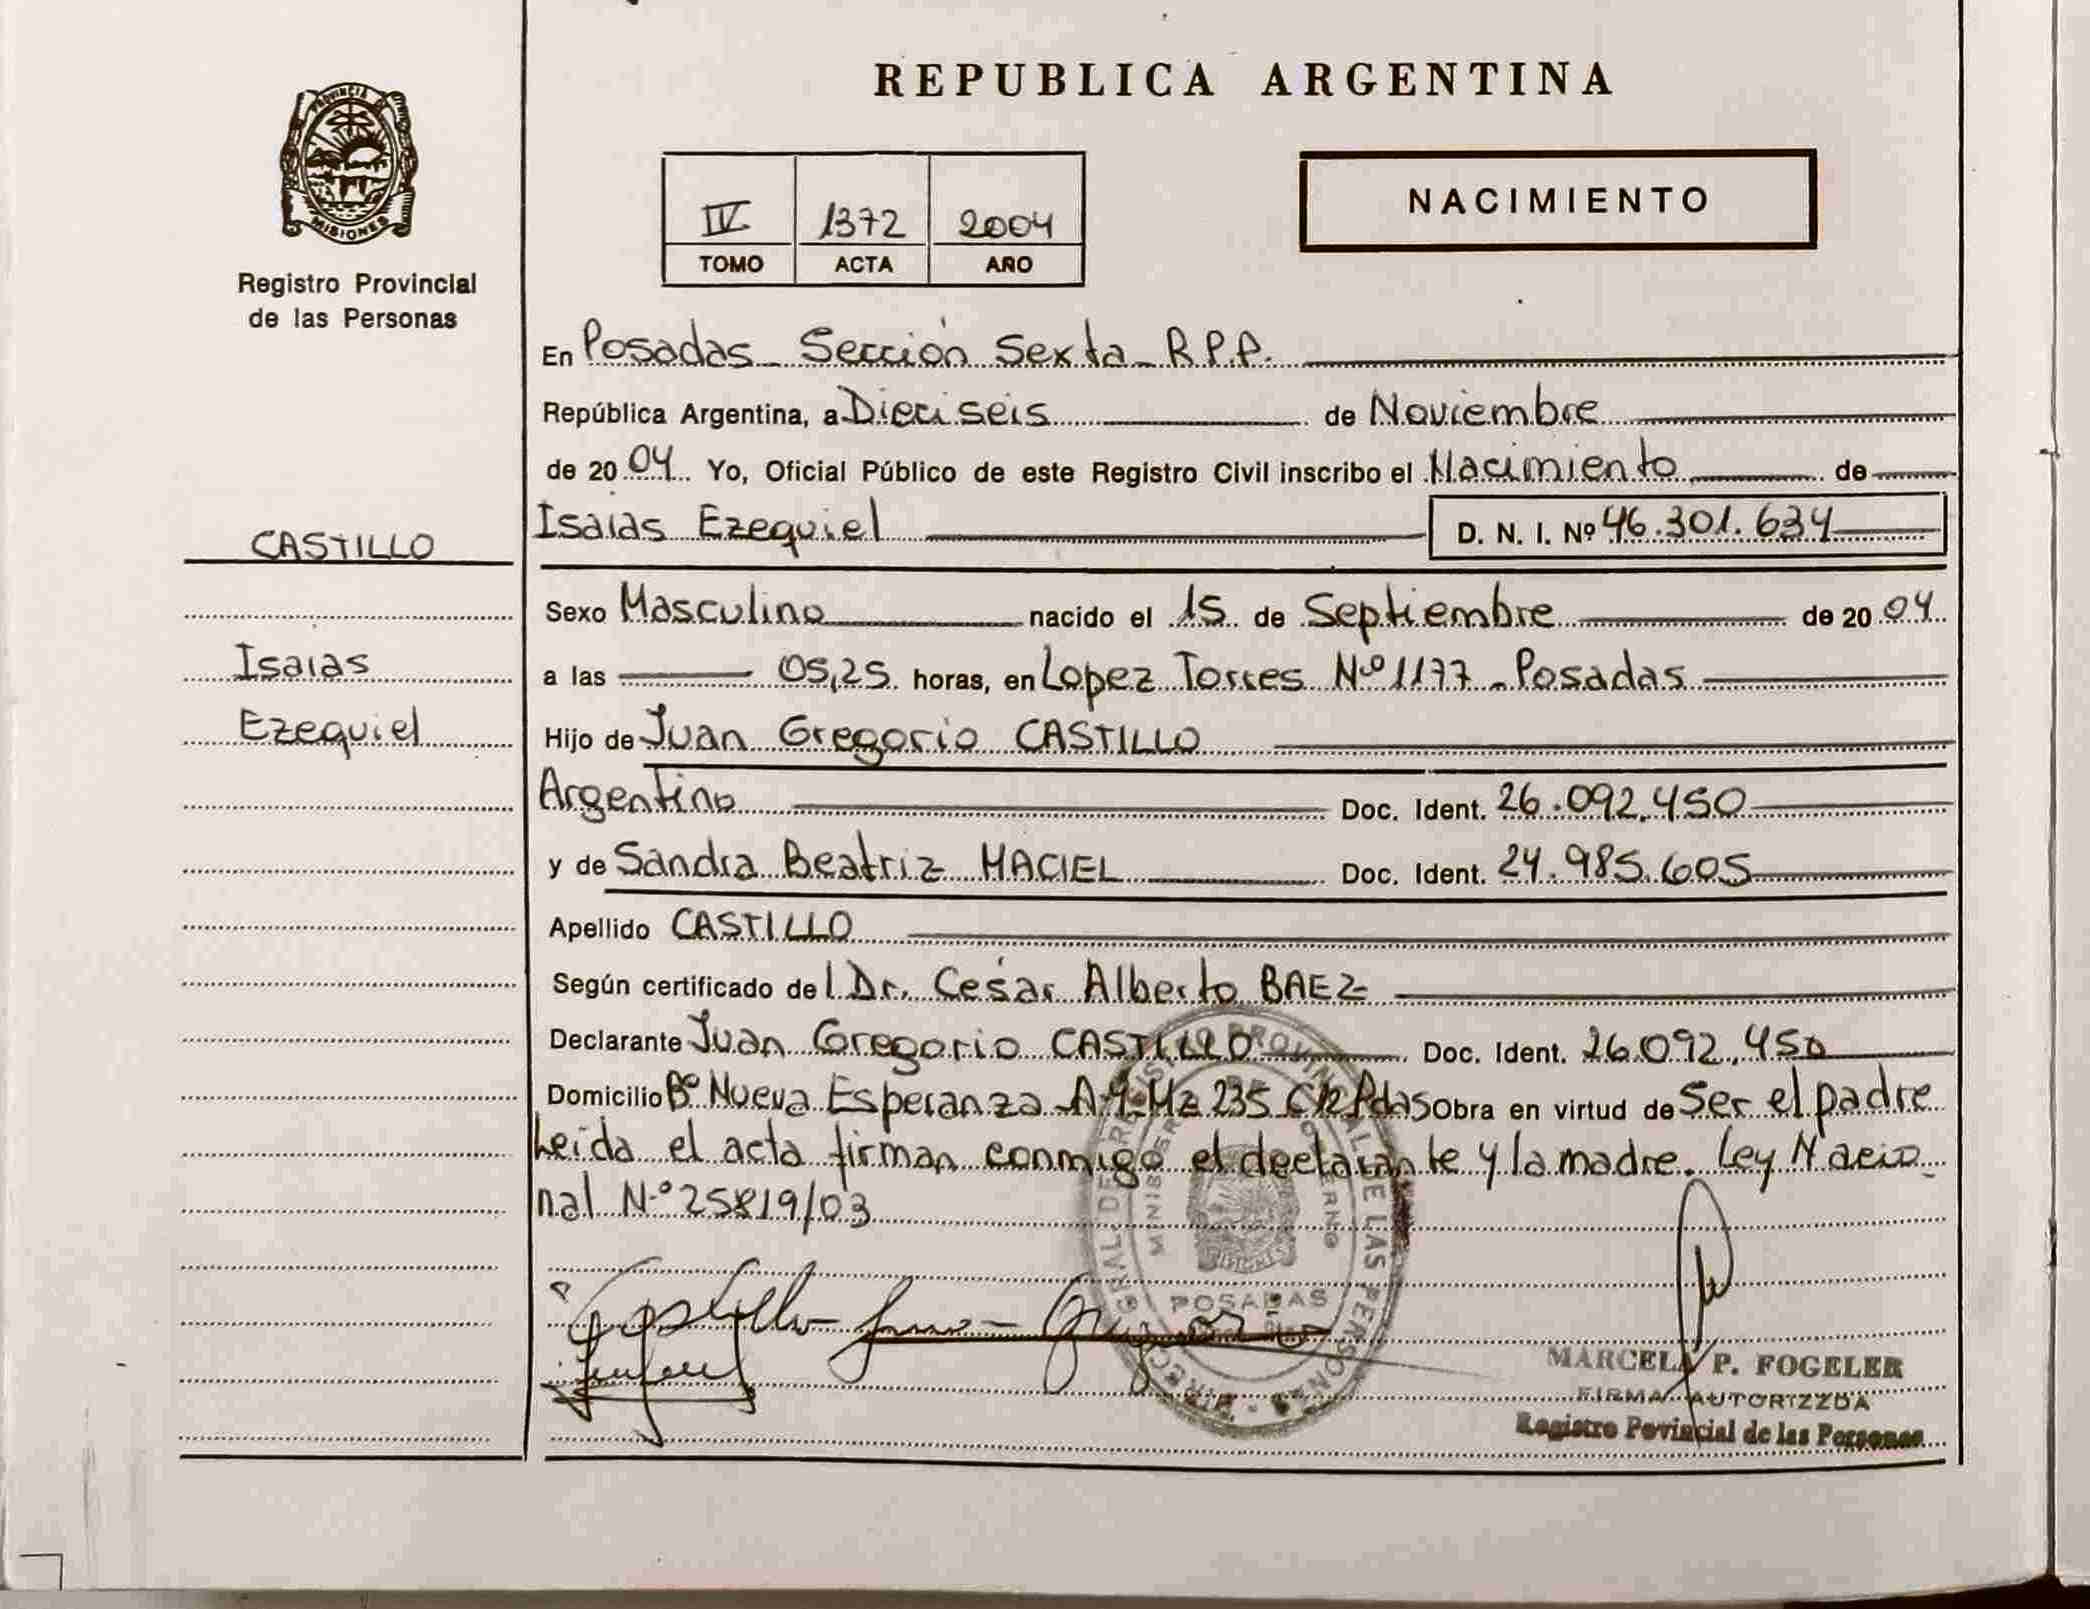 REPUBLICA ARGENTINA
PROVINCIA DE
MISIONES
Registro Provincial
de las Personas
IV 1372 2004
TOMO ACTA AÑO
NACIMIENTO
En Posadas Sección Sexta R.P.P.
República Argentina, a Dieciseis de Noviembre
de 2004 Yo, Oficial Público de este Registro Civil inscribo el Nacimiento de
Isaias Ezequiel D. N. I. Nº 46.301.634
CASTILLO
Sexo Masculino nacido el 15 de Septiembre de 2004
Isaias
a las 05,25 horas, en Lopez Torres Nº 1177 - Posadas
Ezequiel
Hijo de Juan Gregorio CASTILLO
Argentino Doc. Ident. 26.092.450
y de Sandra Beatriz MACIEL Doc. Ident. 24.985.605
Apellido CASTILLO
Según certificado del Dr. Cesar Alberto BAEZ
Declarante Juan Gregorio CASTILLO Doc. Ident. 26.092.450
Domicilio Bº Nueva Esperanza Mz 235 Pdas Obra en virtud de Ser el padre
Leida el acta firman conmigo el declarante y la madre. Ley Nacio
nal Nº 25819/03
POSADAS
MARCELA P. FOGELER
FIRMA AUTORIZZDA
Registro Povincial de las Personas